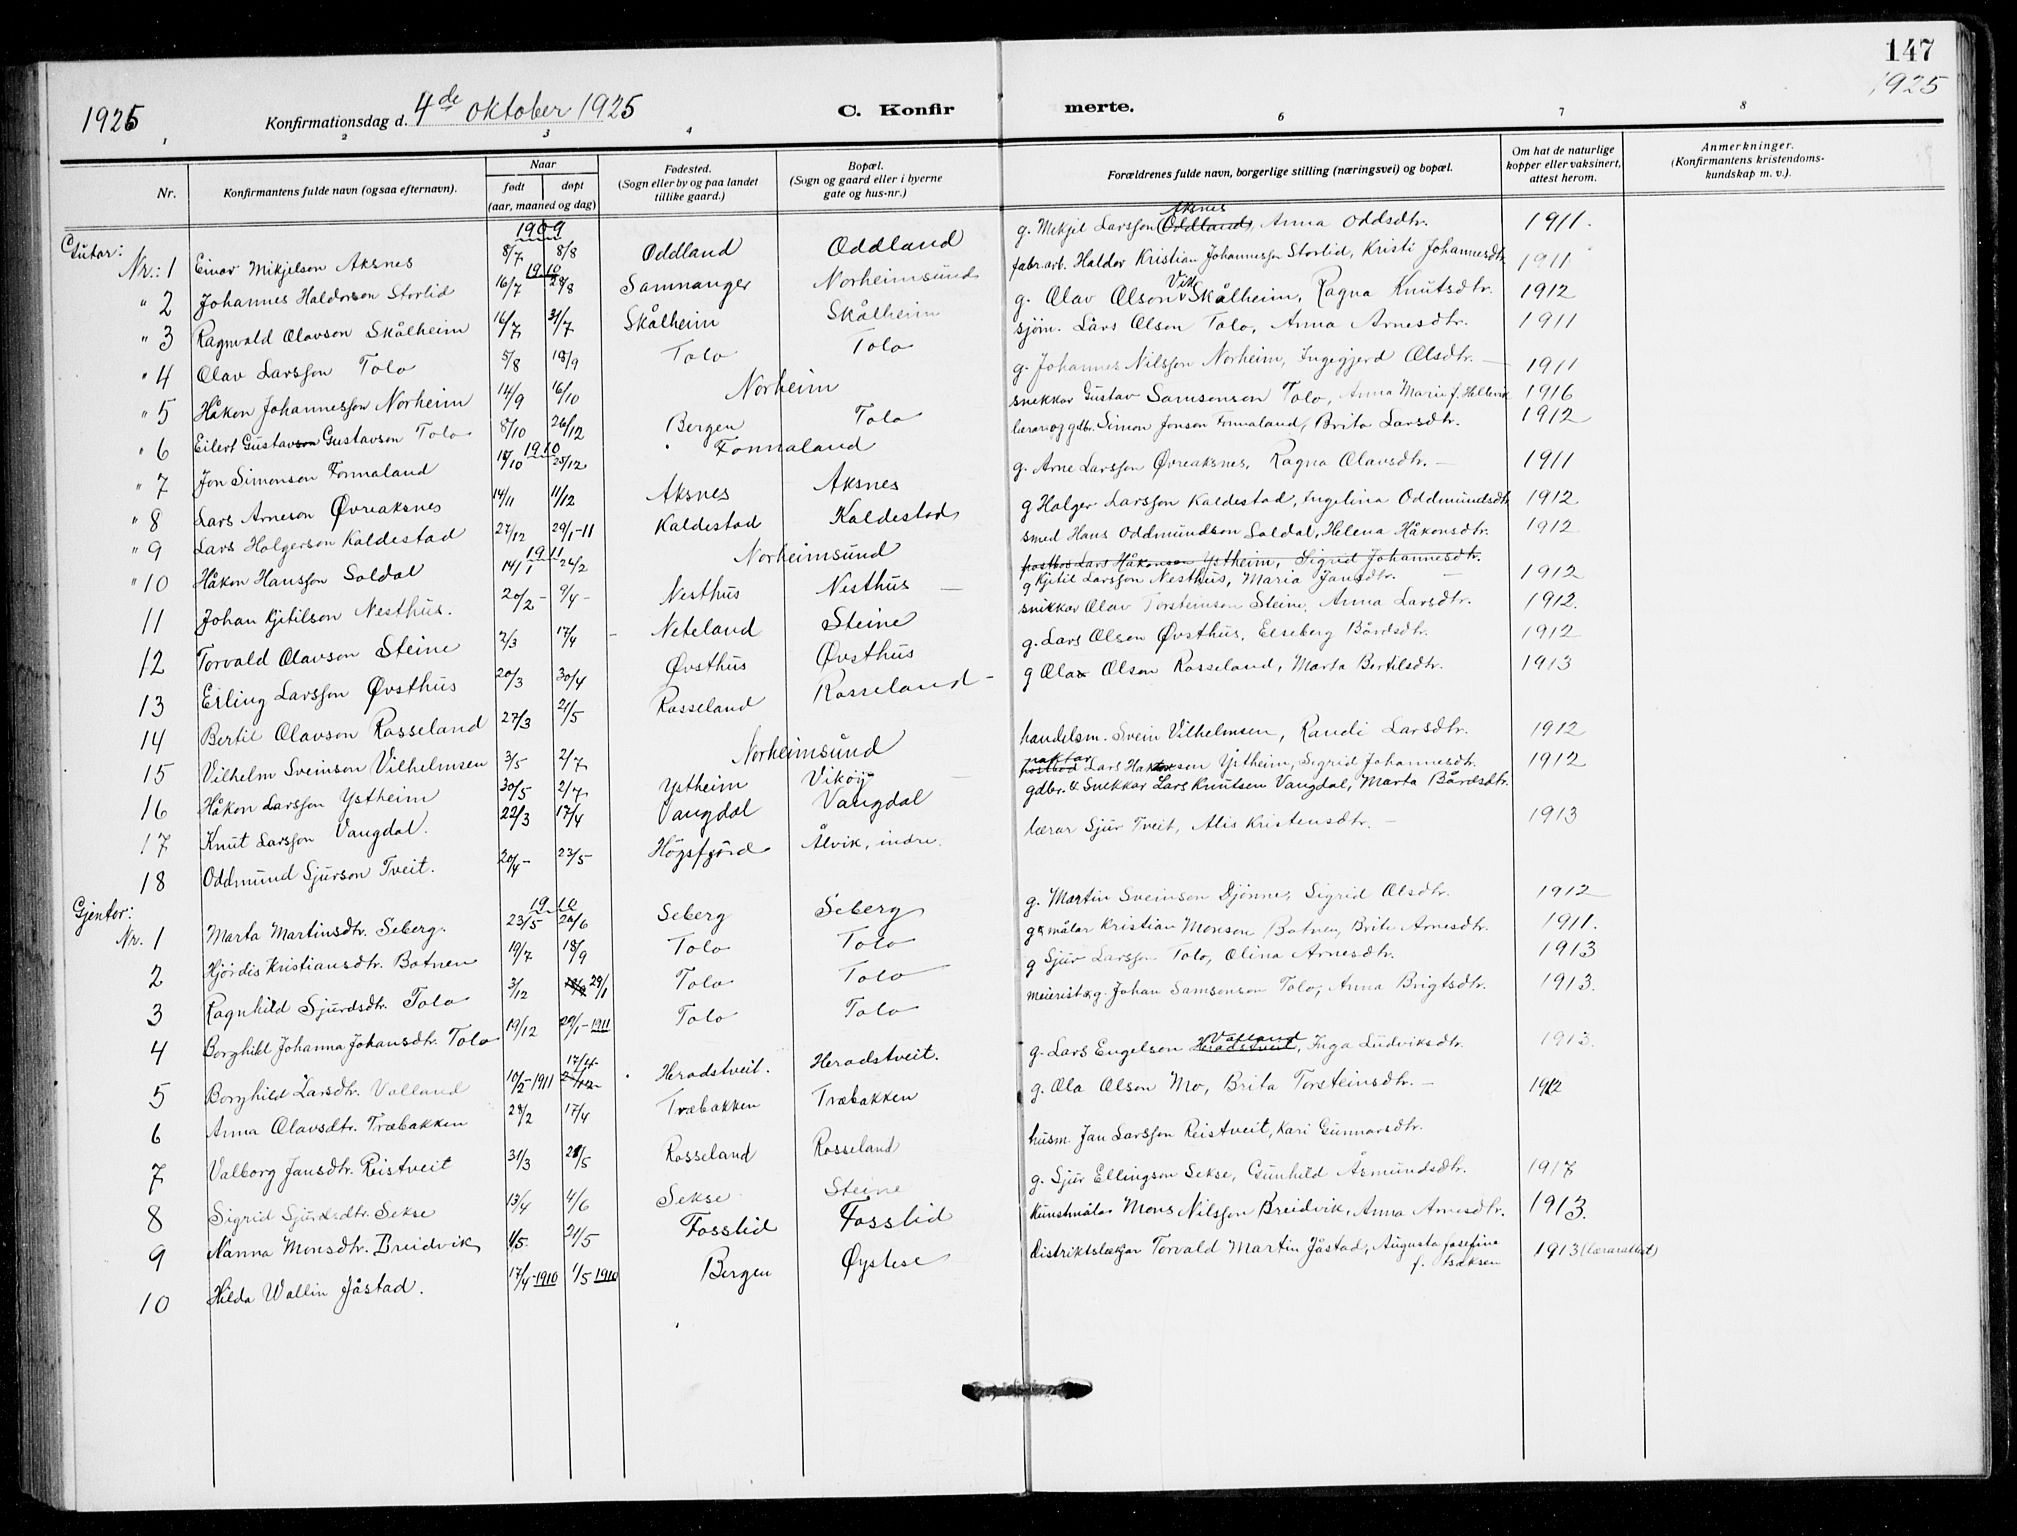 147
1925 Konfirmationsdag d. 4de oktober 1925 C. Konfirmerte. 1925
1 2 3 4 6 7 8
Nr. Konfirmantens fulde navn (ogsaa efternavn). Naar født døpt (aar, maaned og dag) Fødested. (Sogn eller by og paa landet tillike gaard.) Bopæl. (Sogn og gaard eller i byerne gate og hus-nr.) Forældrenes fulde navn, borgerlige stilling (næringsvei) og bopæl. Om hat de naturlige kopper eller vaksinert, attest herom. Anmerkninger. (Konfirmantens kristendoms-kundskap m. v.).
Gutar:
1909
Nr.: 1 Einar Mikjelson Aksnes 8/7 8/8 Oddland Oddland g. Mikjel Larsson Oddland Aksnes, Anna Oddsdtr. 1911.
1910
" 2 Johannes Haldorson Storlid 16/7 28/8 Samnanger Norheimsund fabr.arb. Haldor Kristian Johannesson Storlid, Kristi Johannesdtr. 1911
" 3 Ragnvald Olavson Skålheim 16/7 31/7 Skålheim Skålheim g. Olav Olson Vik Skålheim, Ragna Knutsdtr. 1912
" 4 Olav Larsson Tolo 5/8 18/9 Tolo Tolo sjøm. Lars Olson Tolo, Anna Arnesdtr. 1911
" 5 Håkon Johannesson Norheim 14/9 16/10 Norheim g. Johannes Nilsson Norheim, Ingegjerd Olsdtr. — 1911
" 6 Eilert Gustavson Gustavson Tolo 8/10 26/12 Bergen Tolo snekkar Gustav Samsonson Tolo, Anna Marie f. Hellevik 1916
1910
" 7 Jon Simonson Fonnaland 18/10 25/12 Fonnaland lærar og gdbr. Simon Jonson Fonnaland, Brita Larsdtr. 1912
" 8 Lars Arneson Øvreaksnes 14/11 11/12 Aksnes Aksnes g. Arne Larsson Øvreaksnes, Ragna Olavsdtr. — 1911
" 9 Lars Holgerson Kaldestad 27/12 29/1-11 Kaldestad Kaldestad g Holger Larsson Kaldestad, Ingelina Oddmundsdtr 1912
1911
" 10 Håkon Hansson Soldal 14/1 26/2 Norheimsund smed Hans Oddmundson Soldal, Helena Håkonsdtr. 1912
postbos Lars Håkonson Ystheim, Sigrid Johannesdtr.
11 Johan Kjetilson Nesthus. 20/2 – 9/4 – Nesthus Nesthus — g Kjetil Larsson Nesthus, Maria Jansdtr. — 1912
12 Torvald Olavson Steine 2/3 17/4 – Neteland Steine snikkar Olav Torsteinson Steine, Anna Larsdtr. 1912.
13 Erling Larsson Øvsthus 20/3 30/4 Øvsthus Øvsthus g. Lars Olson Øvsthus, Elseberg Bårdsdtr. 1912
14 Bertil Olavson Rosseland 27/3 21/5 Rosseland Rosseland – g Ola Olson Rosseland, Marta Bertilsdtr. 1913
15 Vilhelm Sveinson Vilhelmsen 3/5 2/7 Norheimsund handelsm. Svein Vilhelmsen, Randi Larsdtr. 1912
16 Håkon Larsson Ystheim 30/5 2/7 Ystheim Vikøy — postbod Lars Håkonson Ystheim, Sigrid Johannesdtr. 1912
17 Knut Larsson Vangdal. 22/3 17/4 Vangdal Vangdal gdbr. & Snekkar Lars Knutsen Vangdal, Marta Bårdsdtr.
18 Oddmund Sjurson Tveit. 20/4 – 23/5 – Høgsfjord Ålvik, indre. lærar Sjur Tveit, Alis Kristensdtr. – 1913
Gjentor:
1910
Nr. 1 Marta Martinsdtr. Seberg. 23/5 26/6 Seberg Seberg g. Martin Sveinson Djønne, Sigrid Olsdtr. 1912
2 Hjørdis Kristiansdtr. Botnen 19/7 18/9 Tolo Tolo g& målar Kristian Monson Botnen, Brita Arnesdtr. 1911.
3 Ragnhild Sjurdsdtr. Tolo 3/12 29/1 Tolo Tolo g Sjur Larsson Tolo, Olina Arnesdtr. 1913
4 Borghild Johanna Johansdtr. Tolo 19/12 29/1-1911 Tolo Tolo meierist & g. Johan Samsonson Tolo, Anna Brigtsdtr. 1913.
5 Borghild Larsdtr. Valland 10/2-1911 17/4 Heradstveit. Heradstveit. g. Lars Engelson Heradstveit Valland, Inga Ludviksdtr. 1913.
6 Anna Olavsdtr. Træbakken 28/2 17/4 Træbakken Træbakken g. Ola Olson Mo, Brita Torsteinsdtr. – 1912
7 Valborg Jansdtr. Reistveit 31/3 28/5 Rosseland Rosseland husm. Jan Larsson Reistveit, Kari Gunnarsdtr.
8 Sigrid Sjursdtr. Sekse 13/4 4/6 Sekse Steine g. Sjur Ellingson Sekse, Gunhild Åsmundsdtr. 1917
9 Nanna Monsdtr. Breidvik 1/5 21/5 Fosslid Fosslid kunstmålar Mons Nilsson Breidvik, Anna Arnesdtr. 1913.
10 Hilda Wallin Jåstad. 17/4-1910 1/5 1910 Bergen Øystese Distriktslækjar Torvald Martin Jåstad, Augusta Josefine f. Isaksen 1913 (lærarattest)